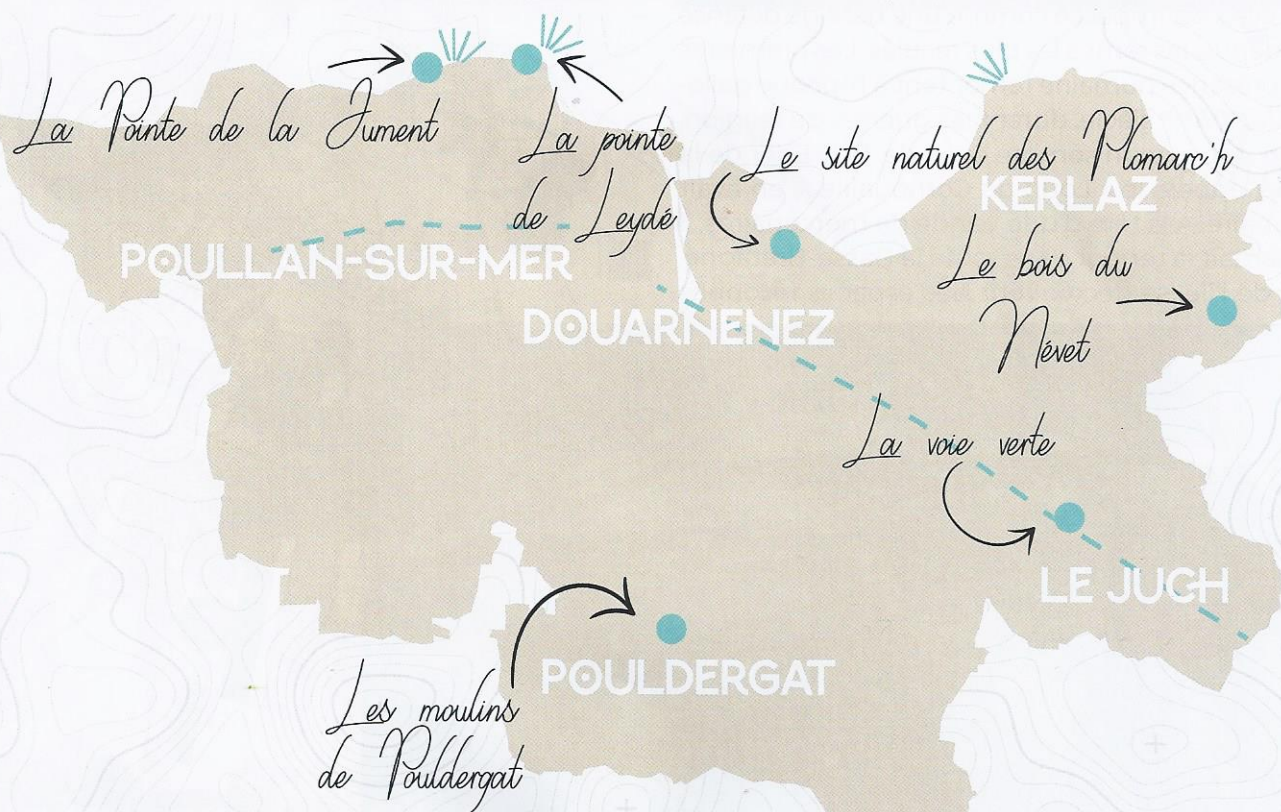 La Pointe de la Jument
La pointe
de Leydé
Le site naturel des Plomarc'h
KERLAZ
POULLAN-SUR-MER
Le bois du
Névet
DOUARNENEZ
La voie verte
LE JUCH
POULDERGAT
Les moulins
de Pouldergat